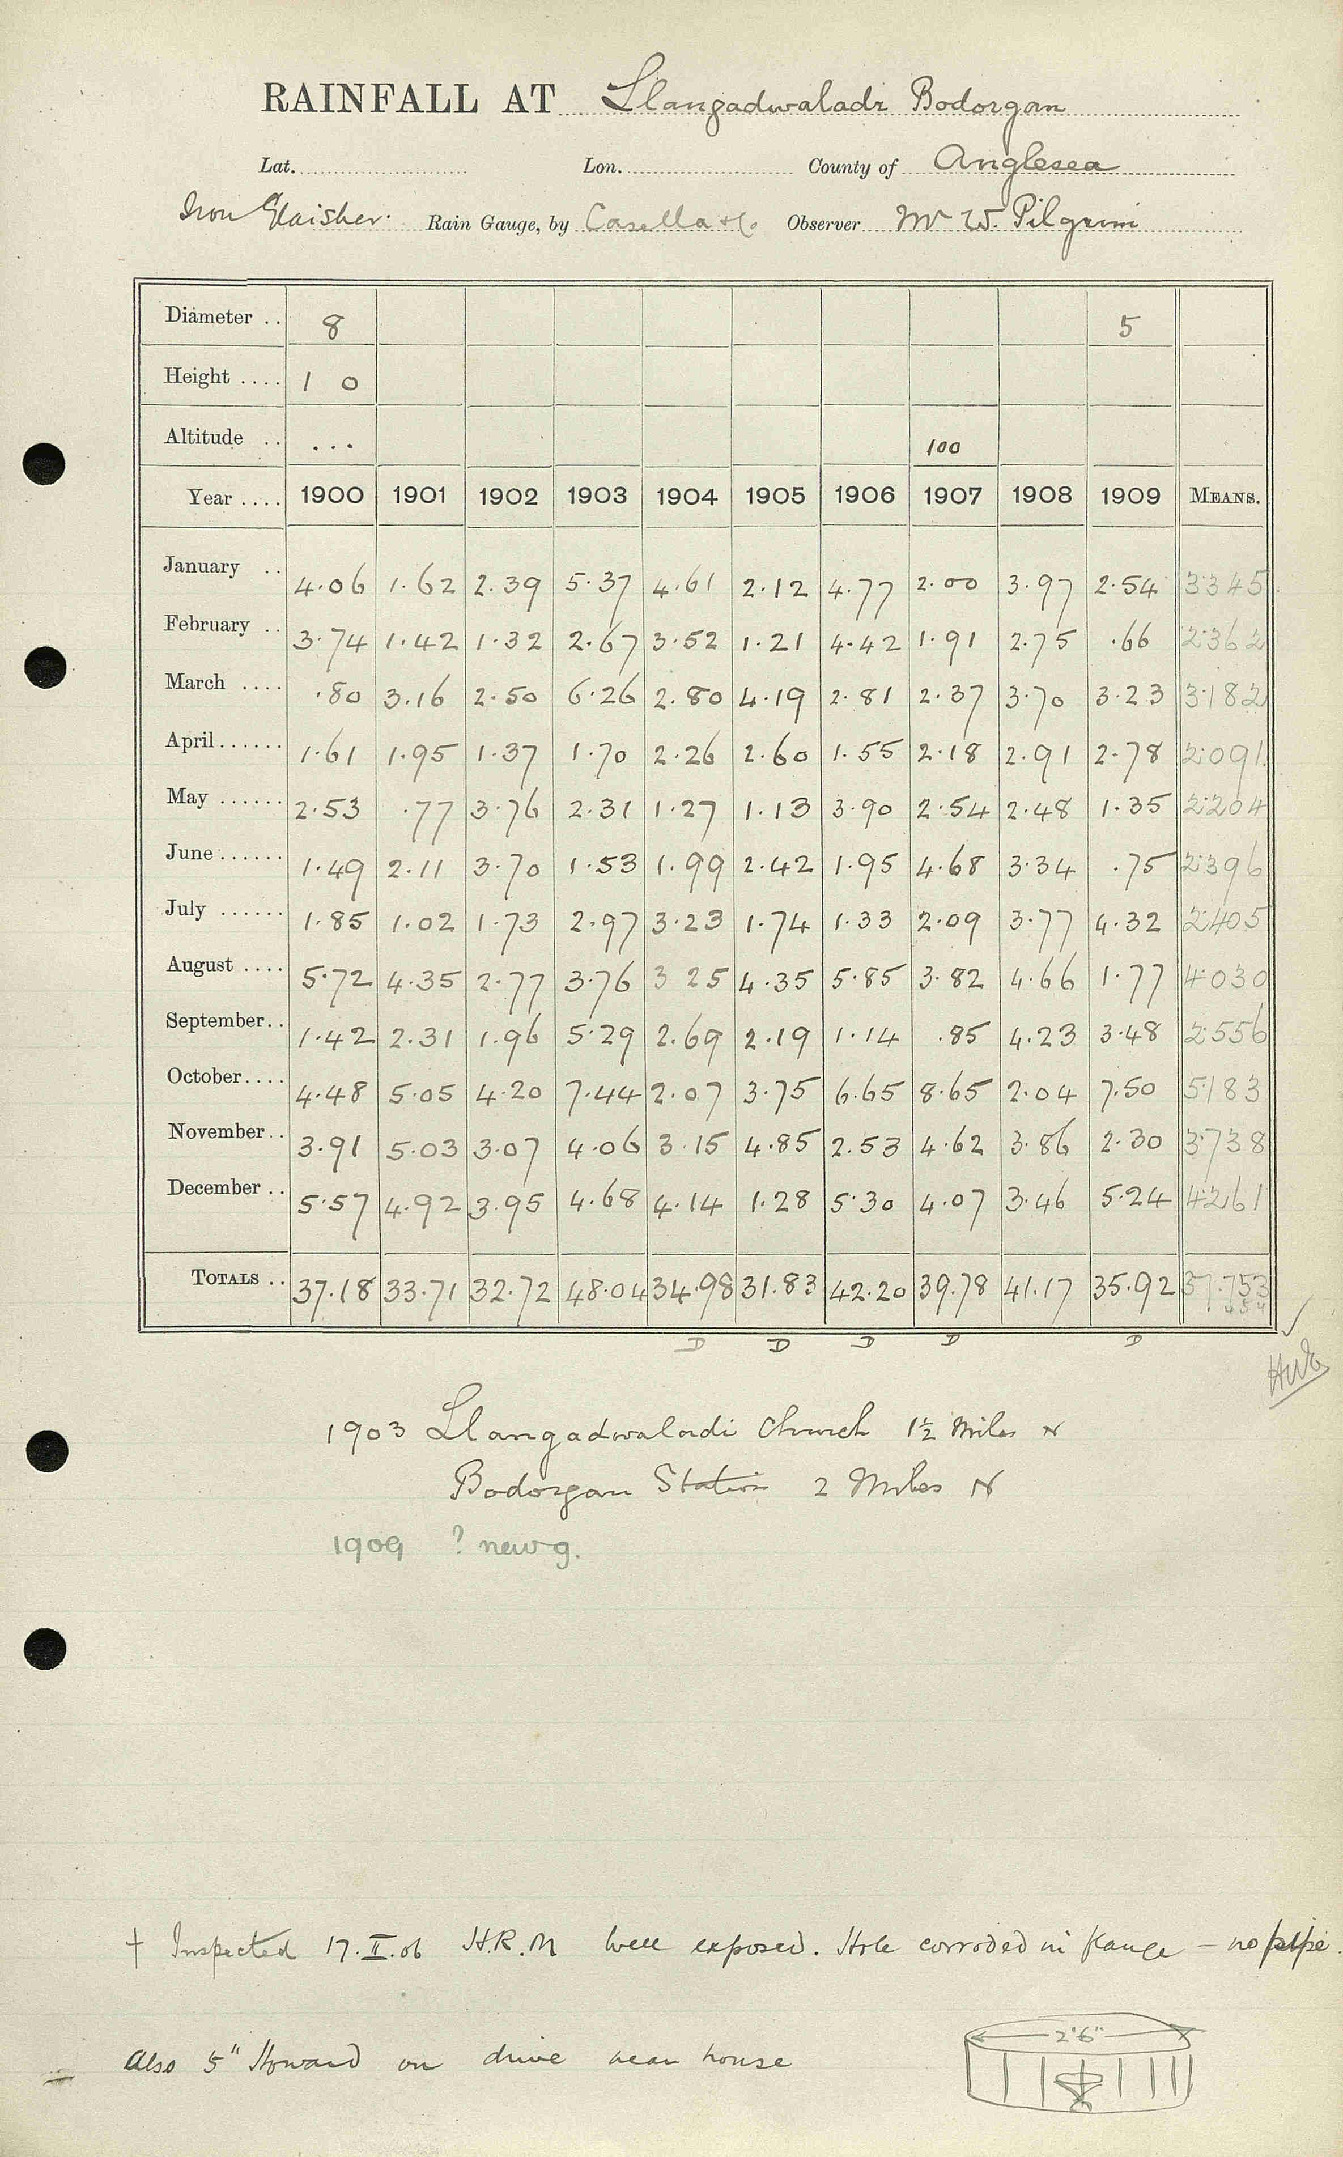 RAINFALL AT Llangadwaladr Bodorgan
Lat. Lon. County of Anglesea
Iron Glaisher. Rain Gauge, by Casella & Co Observer Mr W. Pilgrim
Diameter .. 8 5
Height .... 1 0
Altitude .. ... 100
Year .... 1900 1901 1902 1903 1904 1905 1906 1907 1908 1909 MEANS.
January .. 4.06 1.62 2.39 5.37 4.61 2.12 4.77 2.00 3.97 2.54 3.345
February .. 3.74 1.42 1.32 2.67 3.52 1.21 4.42 1.91 2.75 .66 2.362
March .... .80 3.16 2.50 6.26 2.80 4.19 2.81 2.37 3.70 3.23 3.182
April...... 1.61 1.95 1.37 1.70 2.26 2.60 1.55 2.18 2.91 2.78 2.091
May ...... 2.53 .77 3.76 2.31 1.27 1.13 3.90 2.54 2.48 1.35 2.204
June...... 1.49 2.11 3.70 1.53 1.99 2.42 1.95 4.68 3.34 .75 2.396
July ...... 1.85 1.02 1.73 2.97 3.23 1.74 1.33 2.09 3.77 4.32 2.405
August .... 5.72 4.35 2.77 3.76 3 25 4.35 5.85 3.82 4.66 1.77 4.030
September.. 1.42 2.31 1.96 5.29 2.69 2.19 1.14 .85 4.23 3.48 2.556
October.... 4.48 5.05 4.20 7.44 2.07 3.75 6.65 8.65 2.04 7.50 5.183
November.. 3.91 5.03 3.07 4.06 3.15 4.85 2.53 4.62 3.86 2.30 3.738
December .. 5.57 4.92 3.95 4.68 4.14 1.28 5.30 4.07 3.46 5.24 4.261
TOTALS .. 37.18 33.71 32.72 48.04 34.98 31.83 42.20 39.78 41.17 35.92 37.753
D D D D D
1903 Llangadwaladr Church 1½ Miles N
Bodorgan Station 2 Miles N
1909 ? new g.
† Inspected 17.II.06 H.R.M well exposed. Hole corroded in flange – no pipe.
2'6"
Also 5" Howard on drive near house